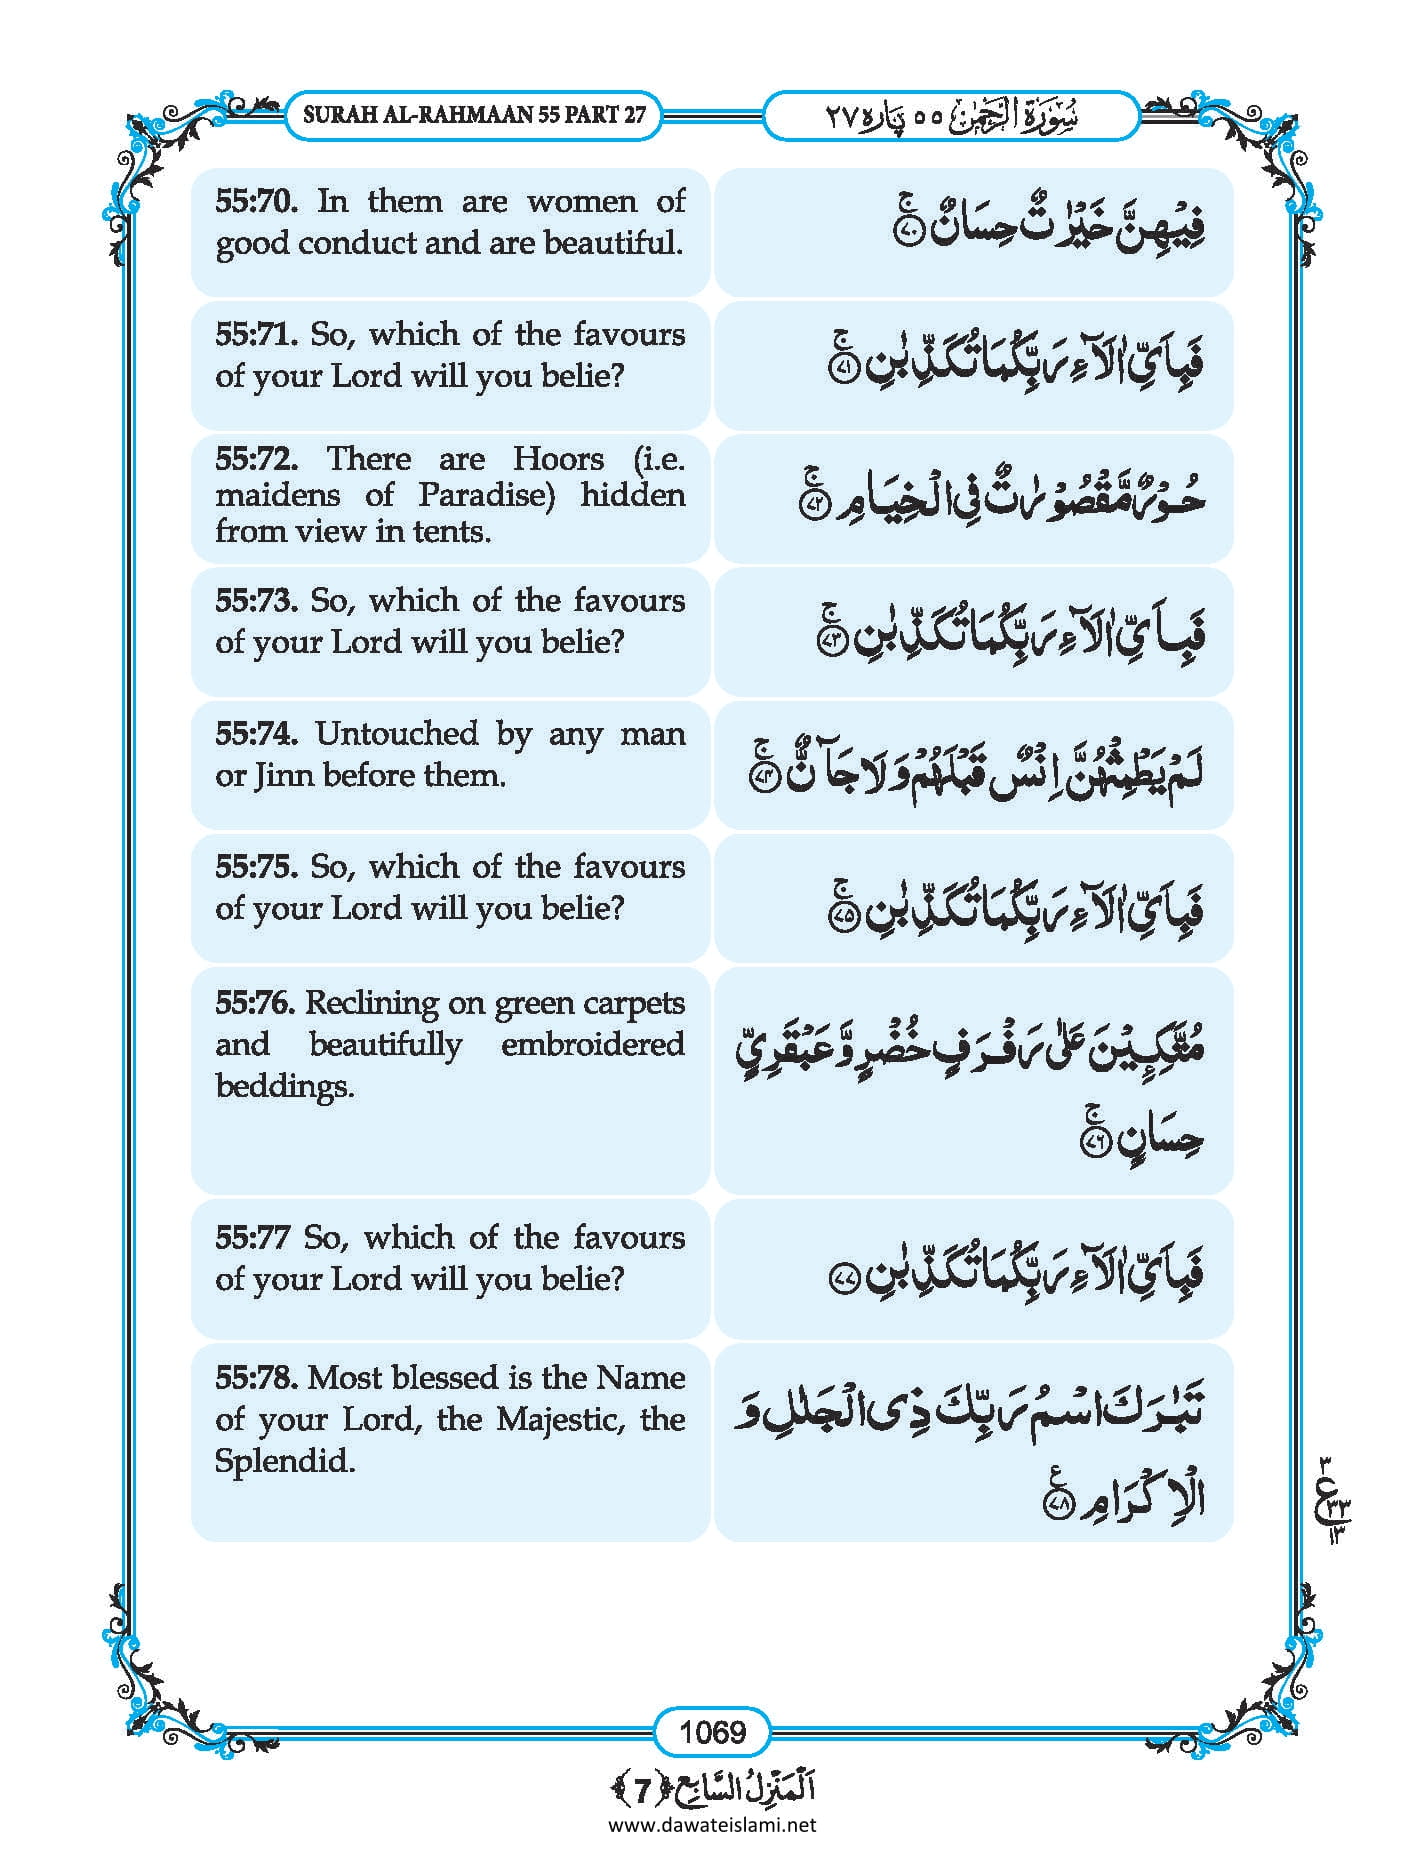 SURAH AL-RAHMAAN 55 PART 27
سُوْرَةُ الرَّحْمٰن ٥٥ پَارہ ٢٧
55:70. In them are women of
good conduct and are beautiful.
فِيْهِنَّ خَيْرٰتٌ حِسَانٌ ۚ﴿٧٠﴾
55:71. So, which of the favours
of your Lord will you belie?
فَبِاَيِّ اٰلَآءِ رَبِّكُمَا تُكَذِّبٰنِ ۚ﴿٧١﴾
55:72. There are Hoors (i.e.
maidens of Paradise) hidden
from view in tents.
حُوْرٌ مَّقْصُوْرٰتٌ فِي الْخِيَامِ ۚ﴿٧٢﴾
55:73. So, which of the favours
of your Lord will you belie?
فَبِاَيِّ اٰلَآءِ رَبِّكُمَا تُكَذِّبٰنِ ۚ﴿٧٣﴾
55:74. Untouched by any man
or Jinn before them.
لَمْ يَطْمِثْهُنَّ اِنْسٌ قَبْلَهُمْ وَلَا جَآنٌّ ۚ﴿٧٤﴾
55:75. So, which of the favours
of your Lord will you belie?
فَبِاَيِّ اٰلَآءِ رَبِّكُمَا تُكَذِّبٰنِ ۚ﴿٧٥﴾
55:76. Reclining on green carpets
and beautifully embroidered
beddings.
مُتَّكِـِٕيْنَ عَلٰى رَفْرَفٍ خُضْرٍ وَّ عَبْقَرِيٍّ
حِسَانٍ ۚ﴿٧٦﴾
55:77 So, which of the favours
of your Lord will you belie?
فَبِاَيِّ اٰلَآءِ رَبِّكُمَا تُكَذِّبٰنِ ﴿٧٧﴾
55:78. Most blessed is the Name
of your Lord, the Majestic, the
Splendid.
تَبٰرَكَ اسْمُ رَبِّكَ ذِي الْجَلٰلِ وَ
الْاِكْرَامِ ﴿٧٨﴾ ع
٣
ع ٣٣
١٣
1069
اَلْمَنْزِلُ السَّابِع ﴿7﴾
www.dawateislami.net